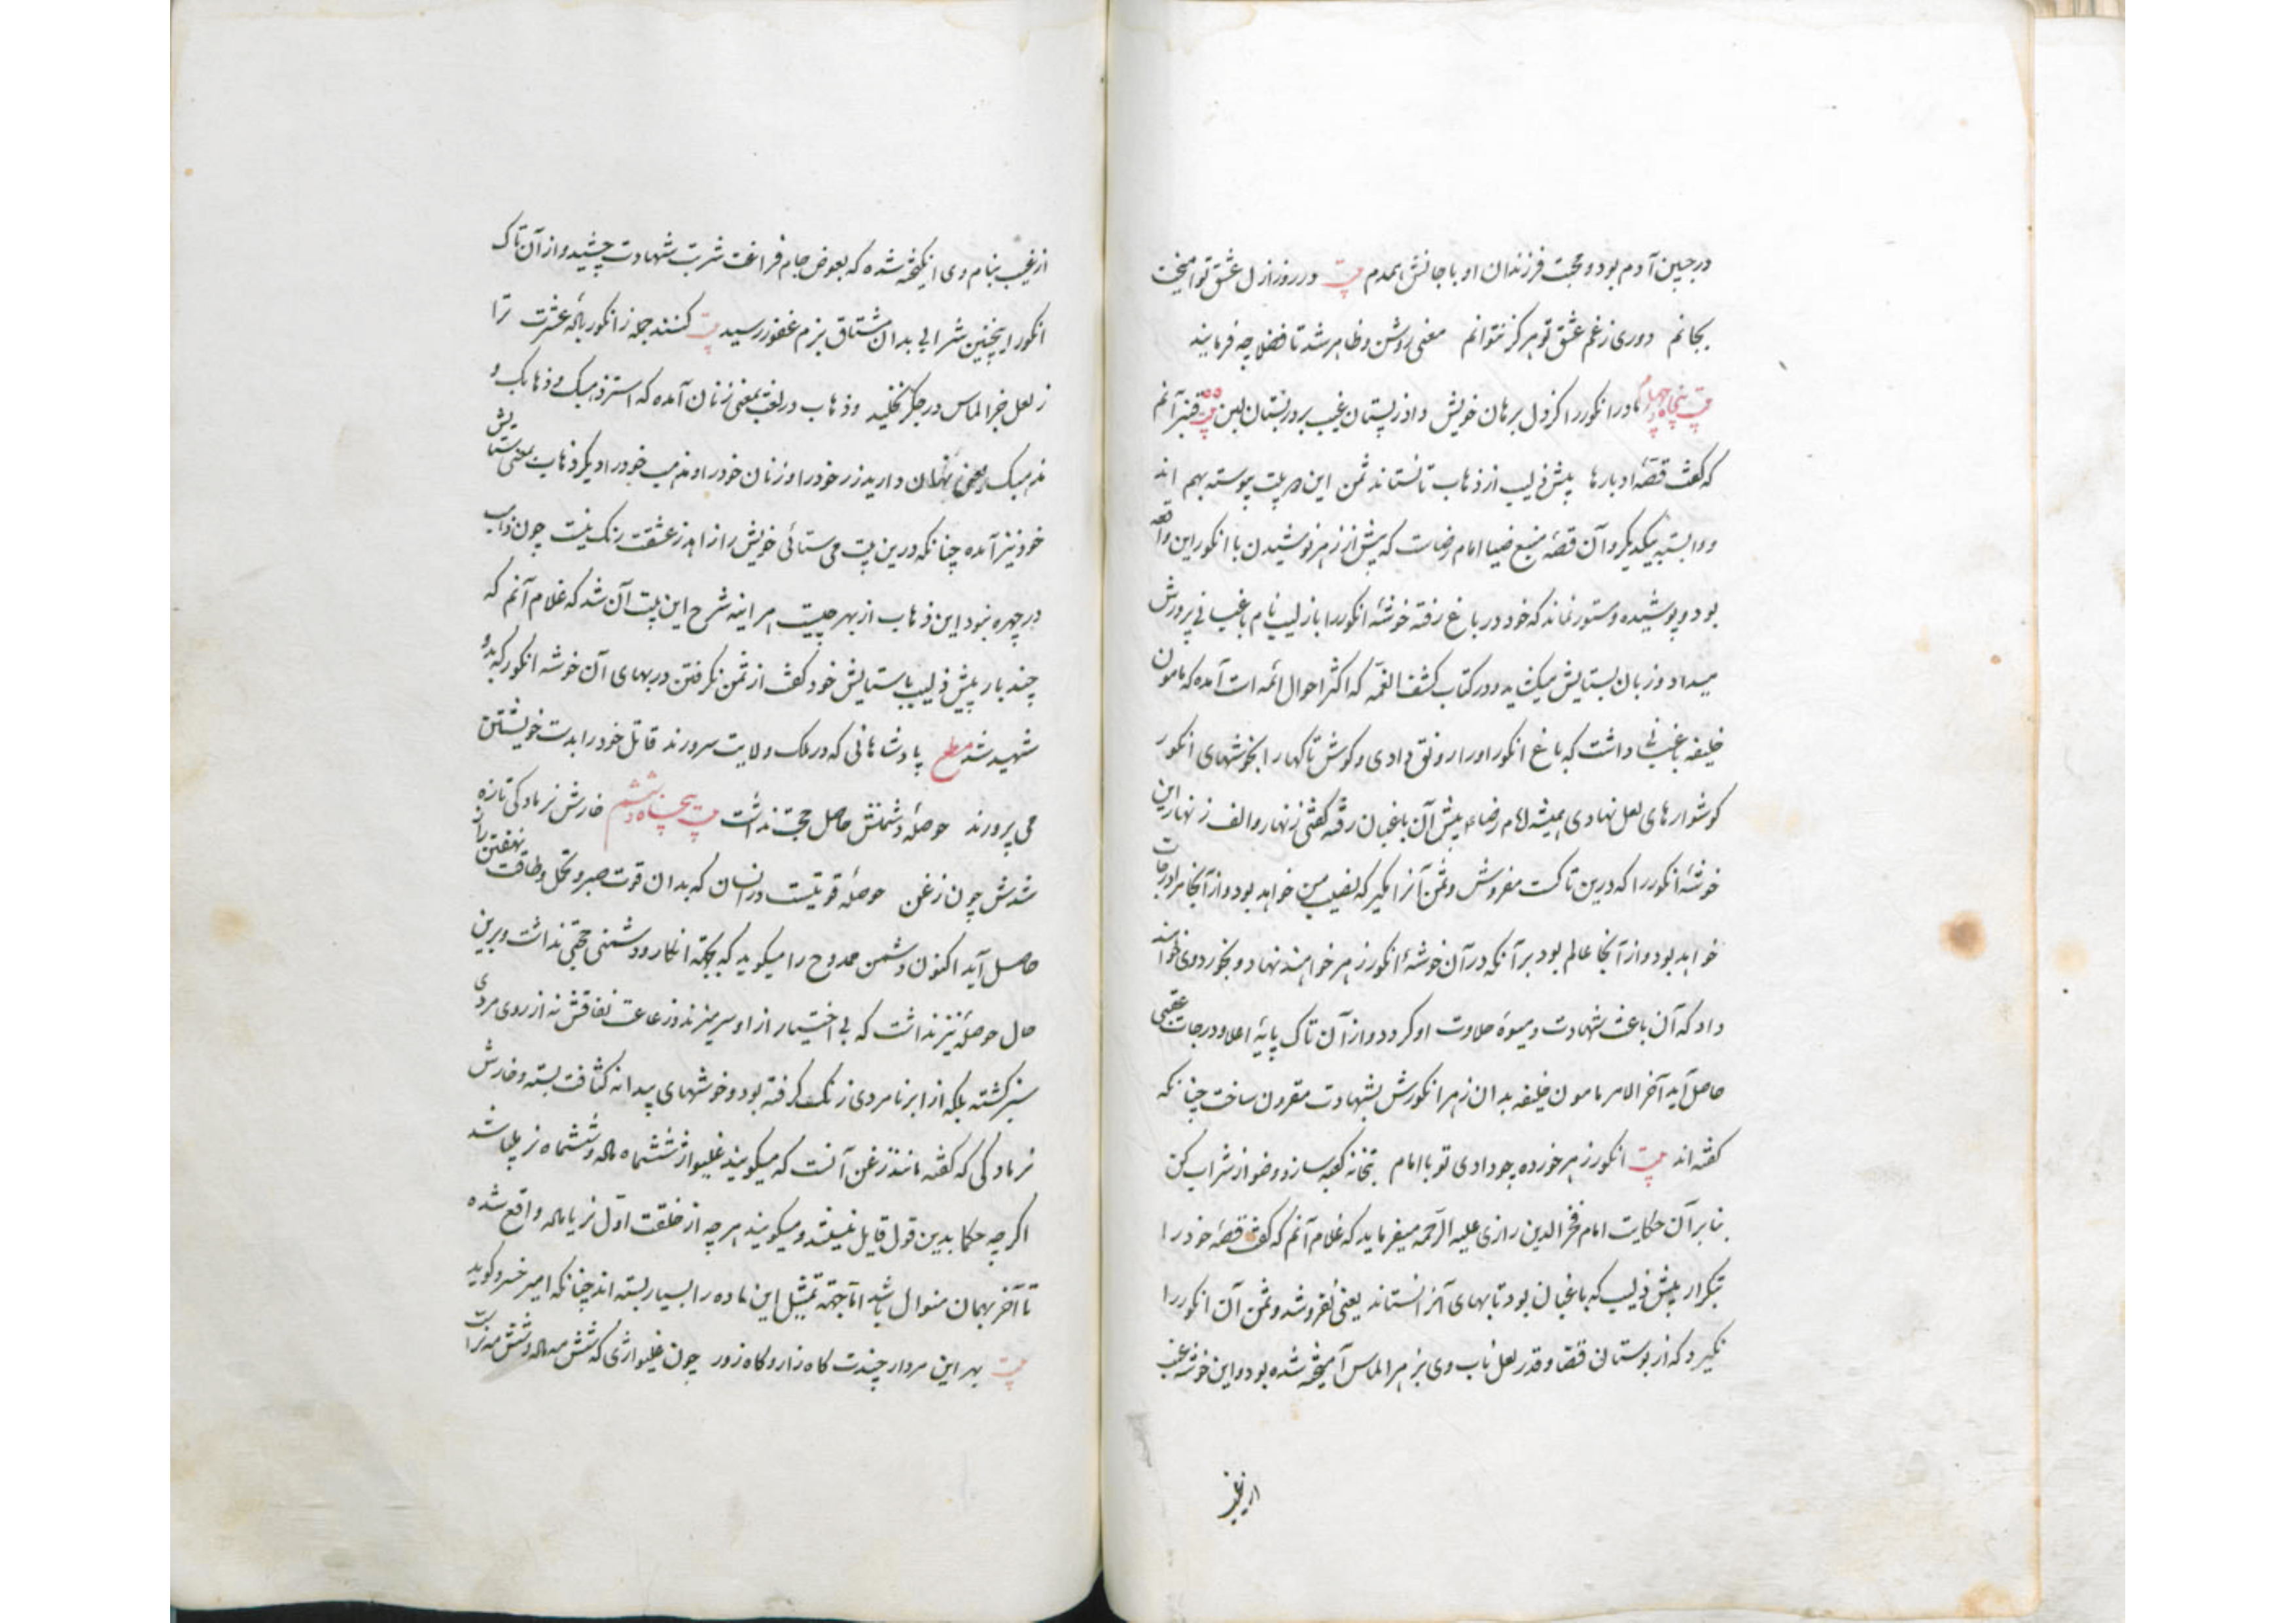 در جبین آدم بود و محبت فرزندان او با جانش همدم بیت در روز ازل عشق تو آمیخت
بجانم دوری ز غم عشق تو هرگز نتوانم معنی روشن و ظاهر شد تا فضلا چه فرمایند
بیت پنجاه چهارم مادر انگور را کز دل برهان خویش داد ز پستان غیب بیت ۵۵ آنم
که گفت قصهٔ او بارها پیش ذلیب از ذهاب تا نستاند ثمن این هر بیت پیوسته بهم اند
و وابسته بیکدیگر و آن قصهٔ منبع ضیا امام رضاست که پیش از زهر نوشیدن با انگور این واقعه
بود و پوشیده و مستور نماند که خود در باغ رفته خوشهٔ انگور را باز لیب نام باغبانی پرورش
میداد و زبان بستایش میکشید و در کتاب کشف الغمه که اکثر احوال ائمه است آمده که مامون
خلیفه باغبانی داشت که باغ انگور او را رونق دادی و گوش تاکها را بخوشهای انگور
گوشوارهای لعل نهادی همیشه امام رضا پیش آن باغبان رفته گفتی زنهار و الف زنهار این
خوشهٔ انگور را که درین تاکست مفروش و ثمن آنرا مگیر که نصیب من خواهد بود و از آنجا مرا درجات
خواهد بود و از آنجا عالم بود بر آنکه در آن خوشهٔ انگور زهر خواهند نهاد و بخورد وی خواهند
داد که آن باعث شهادت و میوهٔ حلاوت او گردد و از آن تاک پایهٔ اعلا و درجات عقبی
حاصل آید آخر الامر مامون خلیفه بدان زهر انگورش بشهادت مقرون ساخت چنانکه
گفته اند بیت انگور زهر خورده چو دادی تو با امام بتخانه کعبه ساز و وضو از شراب کن
بنابر آن حکایت امام فخر الدین رازی علیه الرحمه میفرماید که غلام آنم که گفت قصهٔ خود را
بتکرار پیش ذلیب که باغبان بود تا بهای آنرا نستاند یعنی نفروشد و ثمن آن انگور را
نگیرد که از بوستان قضا و قدر لعل ناب وی بزهر الماس آمیخته شده بود و این خوشه عنب
از غیب
از غیب بنام وی انگیخته شده که بعوض جام فراغت شربت شهادت چشید و از آن تاک
انگور اینچنین شرابی بدان مشتاق بزم غفور رسید بیت کنند جمله ز انگور بادهٔ عشرت ترا
ز لعل جز الماس در جگر نخلید و ذهاب در لغت بمعنی زنان آمده که استر ذهبک و ذهابک و
مذهبک یعنی نهان دارید زر خود را و زنان خود را و مذهب خود را دیگر ذهاب بمعنی ستایش
خود نیز آمده چنانکه درین بیت می ستائی خویش را زاهد ز عشقت رنگ نیست چون ذهاب
در چهره نبود این ذهاب از بهر چیست هر اینه شرح این بیت آن شد که غلام آنم که
چند بار پیش ذلیب با ستایش خود گفت از ثمن نگرفتن در بهای آن خوشه انگور که بدو
شهید شد مطلع پادشاهانی که در ملک ولایت سرورند قاتل خود را بدست خویشتن
می پرورند حوصلهٔ دشمنش حاصل حجت نداشت بیت پنجاه و ششم خارش نر مادگی تازه
شدش چون زغن حوصله قوتیست در انسان که بدان قوت صبر و تحمل و طاقت نهفتن راز
حاصل آید اکنون دشمن ممدوح را میگوید که بجهته انکار و دشمنی حجتی نداشت و برین
حال حوصله نیز نداشت که بی اختیار از او سر میزند و زعاعت نفاقش نه از روی مردی
سبز گشته بلکه از ابر نامردی زنگ گرفته بود و خوشهای پیدانه کثافت بسته و خارش
نر مادگی که گفته مانند زغن آنست که میگویند غلیواژ ششماه ماده و ششماه نر میباشد
اگرچه حکما بدین قول قایل نیستند و میگویند هر چه از خلقت اول نر یا ماده واقع شده
تا آخر بهمان منوال باشد اما جهته تمثیل این ماده را بسیار بسته اند چنانکه امیر خسرو گوید
بیت بهر این مردار چندت گاه زار و گاه زور چون غلیواژی که شش مه ماده و شش مه نر است